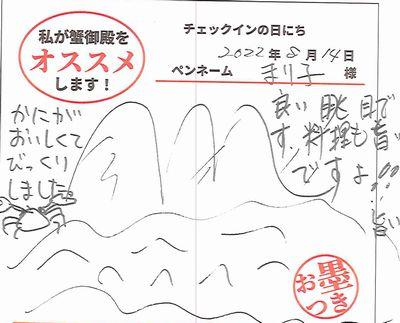 私が蟹御殿を
オススメ
します！
チェックインの日にち
2022年8月14日
ペンネーム まり子 様
かにが
おいしくて
びっくり
しました。
良い眺目で
す,料理も旨い
ですよ!!!
旨い
お墨
つき